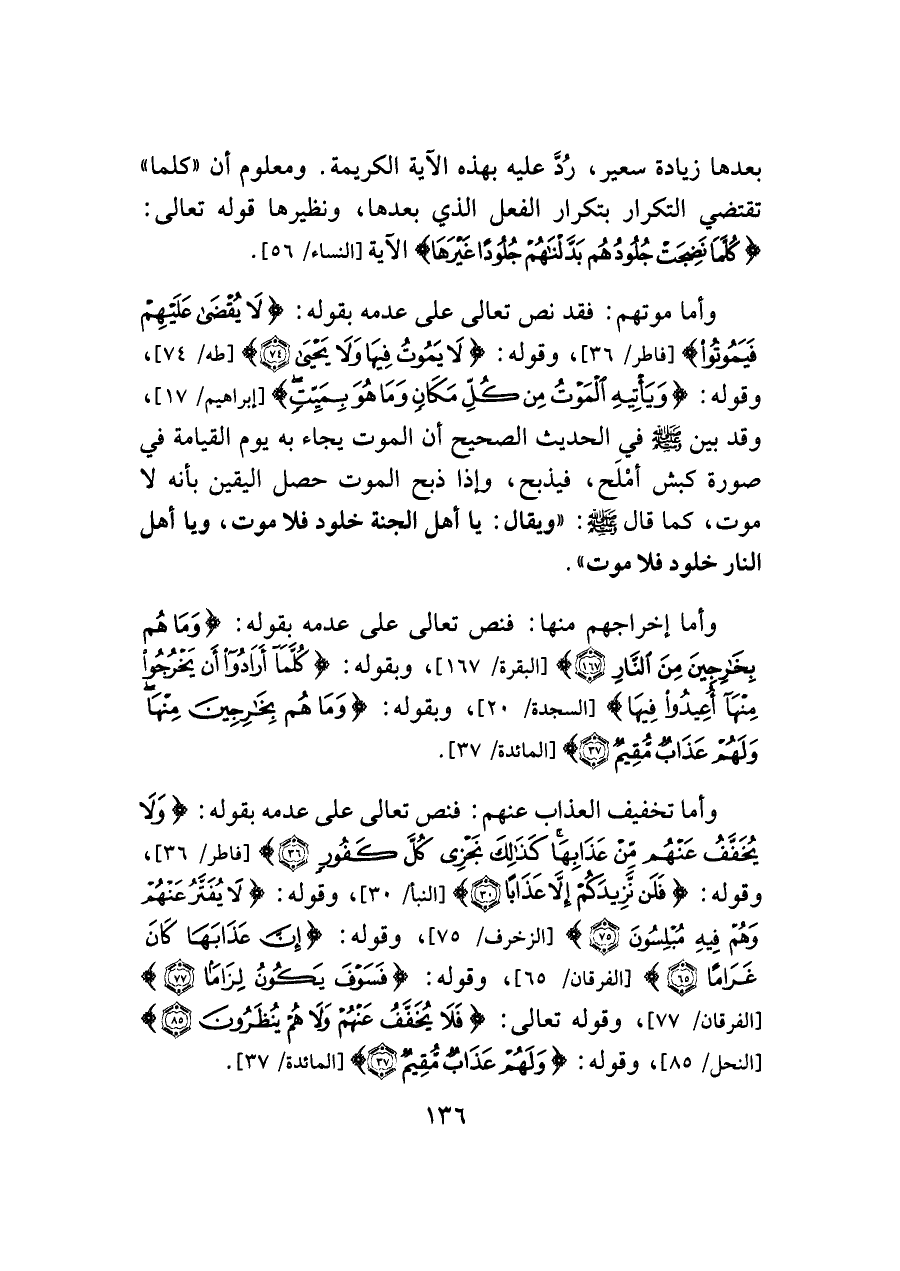 بعدها زيادة سعير، رُدَّ عليه بهذه الآية الكريمة. ومعلوم أن «كلما»
تقتضي التكرار بتكرار الفعل الذي بعدها، ونظيرها قوله تعالى:
﴿كُلَّمَا نَضِجَتْ جُلُودُهُم بَدَّلْنَٰهُمْ جُلُودًا غَيْرَهَا﴾ الآية [النساء/ ٥٦].
وأما موتهم: فقد نص تعالى على عدمه بقوله: ﴿لَا يُقْضَىٰ عَلَيْهِمْ
فَيَمُوتُوا۟﴾ [فاطر/ ٣٦]، وقوله: ﴿لَا يَمُوتُ فِيهَا وَلَا يَحْيَىٰ ٧٤﴾ [طه/ ٧٤]،
وقوله: ﴿وَيَأْتِيهِ ٱلْمَوْتُ مِن كُلِّ مَكَانٍ وَمَا هُوَ بِمَيِّتٍۖ﴾ [إبراهيم/ ١٧]،
وقد بين ﷺ في الحديث الصحيح أن الموت يجاء به يوم القيامة في
صورة كبش أمْلَح، فيذبح، وإذا ذبح الموت حصل اليقين بأنه لا
موت، كما قال ﷺ: «ويقال: يا أهل الجنة خلود فلا موت، ويا أهل
النار خلود فلا موت».
وأما إخراجهم منها: فنص تعالى على عدمه بقوله: ﴿وَمَا هُم
بِخَٰرِجِينَ مِنَ ٱلنَّارِ ١٦٧﴾ [البقرة/ ١٦٧]، وبقوله: ﴿كُلَّمَآ أَرَادُوٓا۟ أَن يَخْرُجُوا۟
مِنْهَآ أُعِيدُوا۟ فِيهَا﴾ [السجدة/ ٢٠]، وبقوله: ﴿وَمَا هُم بِخَٰرِجِينَ مِنْهَاۖ
وَلَهُمْ عَذَابٌ مُّقِيمٌ ٣٧﴾ [المائدة/ ٣٧].
وأما تخفيف العذاب عنهم: فنص تعالى على عدمه بقوله: ﴿وَلَا
يُخَفَّفُ عَنْهُم مِّنْ عَذَابِهَاۚ كَذَٰلِكَ نَجْزِى كُلَّ كَفُورٍ ٣٦﴾ [فاطر/ ٣٦]،
وقوله: ﴿فَلَن نَّزِيدَكُمْ إِلَّا عَذَابًا ٣٠﴾ [النبأ/ ٣٠]، وقوله: ﴿لَا يُفَتَّرُ عَنْهُمْ
وَهُمْ فِيهِ مُبْلِسُونَ ٧٥﴾ [الزخرف/ ٧٥]، وقوله: ﴿إِنَّ عَذَابَهَا كَانَ
غَرَامًا ٦٥﴾ [الفرقان/ ٦٥]، وقوله: ﴿فَسَوْفَ يَكُونُ لِزَامًۢا ٧٧﴾
[الفرقان/ ٧٧]، وقوله تعالى: ﴿فَلَا يُخَفَّفُ عَنْهُمْ وَلَا هُمْ يُنظَرُونَ ٨٥﴾
[النحل/ ٨٥]، وقوله: ﴿وَلَهُمْ عَذَابٌ مُّقِيمٌ ٣٧﴾ [المائدة/ ٣٧].
١٣٦